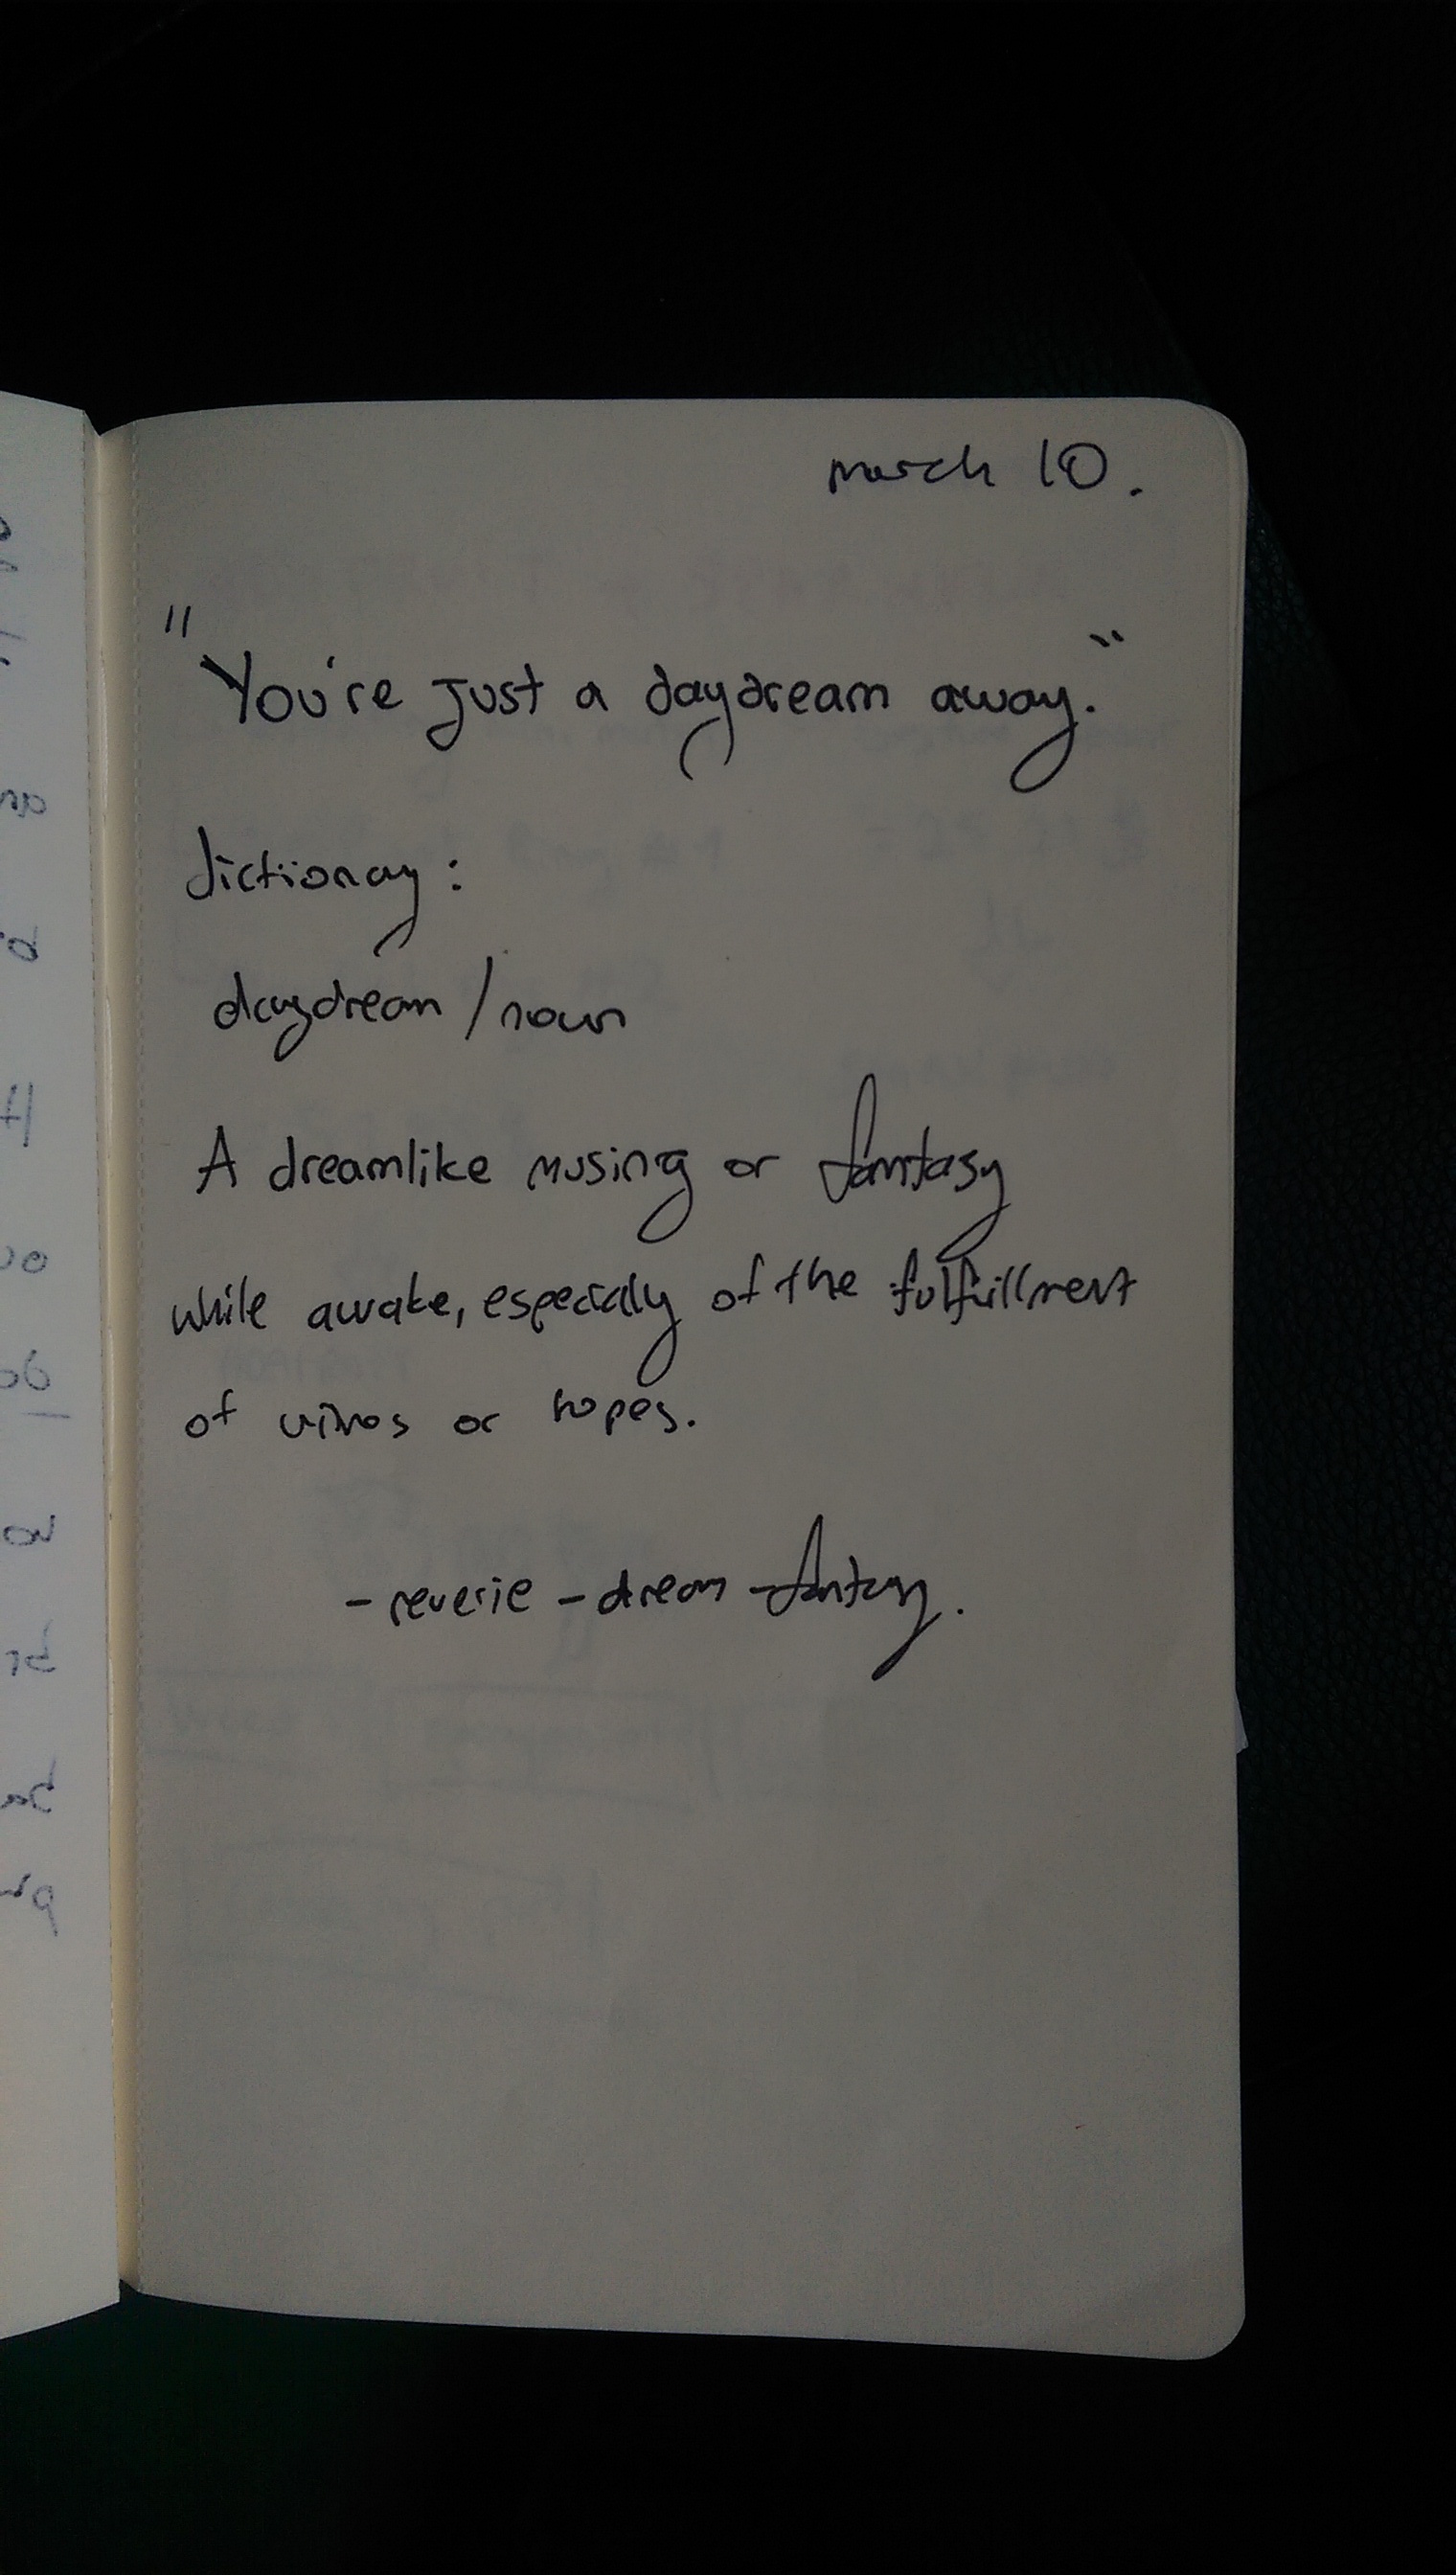 march 10.
"You're just a daydream away."
dictionary:
daydream / noun
A dreamlike musing or fantasy
while awake, especialy of the fulfillment
of or hopes.
- reverie - dream - fantasy.